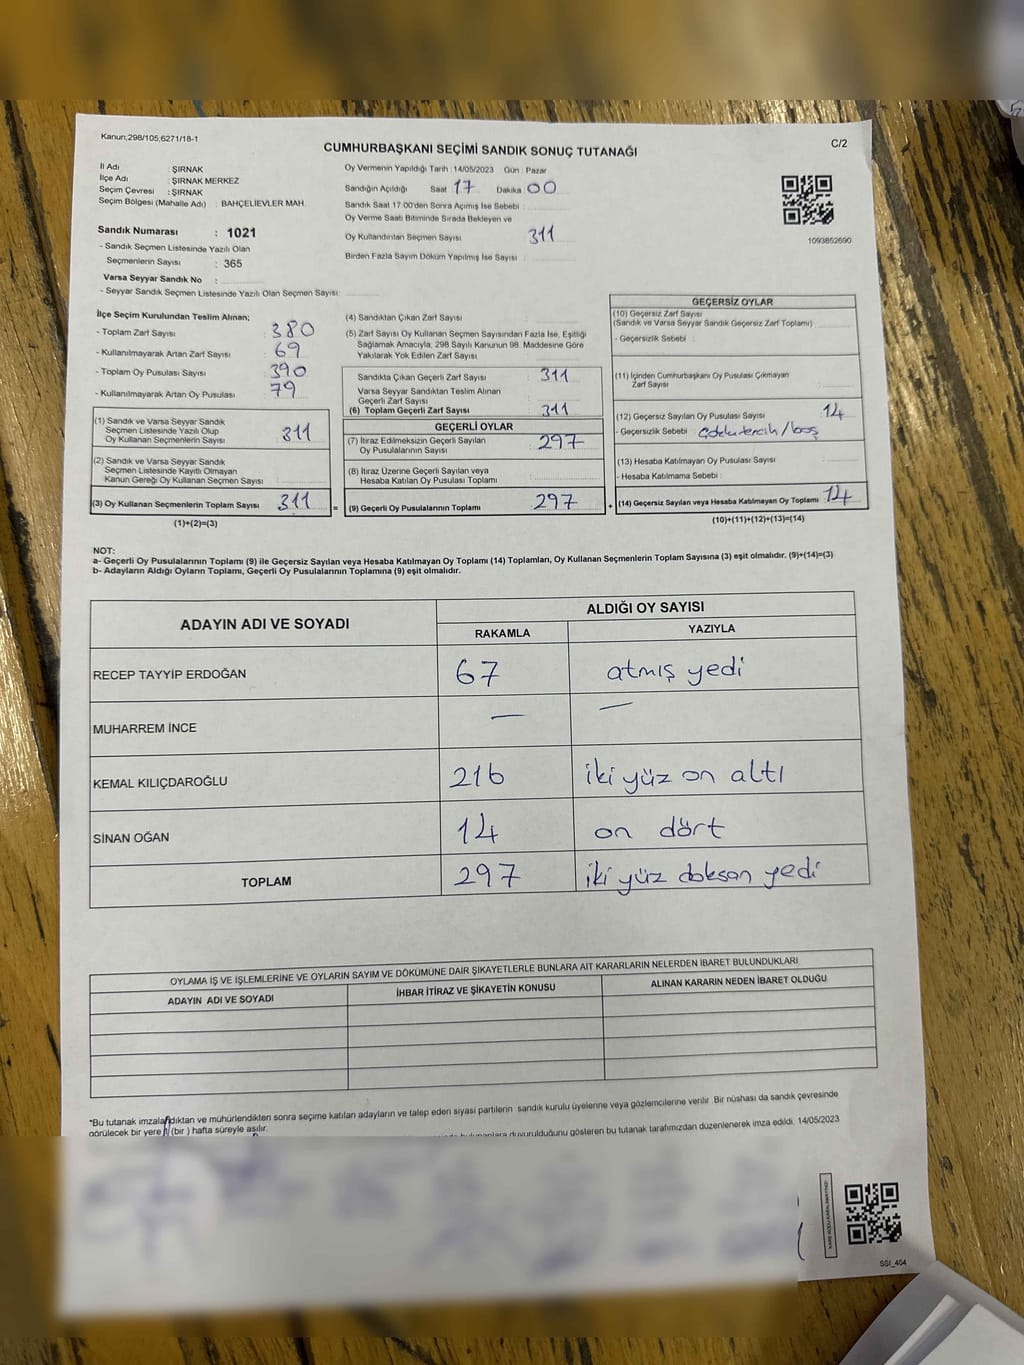 Kanun;298/105;6271/18-1
C/2
CUMHURBAŞKANI SEÇİMİ SANDIK SONUÇ TUTANAĞI
İl Adı : ŞIRNAK
İlçe Adı : ŞIRNAK MERKEZ
Seçim Çevresi : ŞIRNAK
Seçim Bölgesi (Mahalle Adı) : BAHÇELİEVLER MAH.
Sandık Numarası : 1021
- Sandık Seçmen Listesinde Yazılı Olan
Seçmenlerin Sayısı : 365
Varsa Seyyar Sandık No :
- Seyyar Sandık Seçmen Listesinde Yazılı Olan Seçmen Sayısı:
Oy Vermenin Yapıldığı Tarih : 14/05/2023 Gün : Pazar
Sandığın Açıldığı Saat 17 Dakika 00
Sandık Saat 17:00'den Sonra Açımış İse Sebebi :
Oy Verme Saati Bitiminde Sırada Bekleyen ve
Oy Kullandırılan Seçmen Sayısı 311
Birden Fazla Sayım Döküm Yapılmış İse Sayısı :
1093852690
İlçe Seçim Kurulundan Teslim Alınan;
- Toplam Zarf Sayısı : 380
- Kullanılmayarak Artan Zarf Sayısı : 69
- Toplam Oy Pusulası Sayısı : 390
- Kullanılmayarak Artan Oy Pusulası : 79
(1) Sandık ve Varsa Seyyar Sandık
Seçmen Listesinde Yazılı Olup
Oy Kullanan Seçmenlerin Sayısı : 311
(2) Sandık ve Varsa Seyyar Sandık
Seçmen Listesinde Kayıtlı Olmayan
Kanun Gereği Oy Kullanan Seçmen Sayısı :
(3) Oy Kullanan Seçmenlerin Toplam Sayısı : 311
(1)+(2)=(3)
(4) Sandıktan Çıkan Zarf Sayısı :
(5) Zarf Sayısı Oy Kullanan Seçmen Sayısından Fazla İse, Eşitliği
Sağlamak Amacıyla, 298 Sayılı Kanunun 98. Maddesine Göre
Yakılarak Yok Edilen Zarf Sayısı :
Sandıkta Çıkan Geçerli Zarf Sayısı : 311
Varsa Seyyar Sandıktan Teslim Alınan
Geçerli Zarf Sayısı :
(6) Toplam Geçerli Zarf Sayısı : 311
GEÇERLİ OYLAR
(7) İtiraz Edilmeksizin Geçerli Sayılan
Oy Pusulalarının Sayısı : 297
(8) İtiraz Üzerine Geçerli Sayılan veya
Hesaba Katılan Oy Pusulası Toplamı :
= (9) Geçerli Oy Pusulalarının Toplamı : 297
GEÇERSİZ OYLAR
(10) Geçersiz Zarf Sayısı
(Sandık ve Varsa Seyyar Sandık Geçersiz Zarf Toplamı) :
- Geçersizlik Sebebi :
(11) İçinden Cumhurbaşkanı Oy Pusulası Çıkmayan
Zarf Sayısı :
(12) Geçersiz Sayılan Oy Pusulası Sayısı : 14
- Geçersizlik Sebebi :
(13) Hesaba Katılmayan Oy Pusulası Sayısı :
- Hesaba Katılmama Sebebi :
+ (14) Geçersiz Sayılan veya Hesaba Katılmayan Oy Toplamı 14
(10)+(11)+(12)+(13)=(14)
NOT:
a- Geçerli Oy Pusulalarının Toplamı (9) ile Geçersiz Sayılan veya Hesaba Katılmayan Oy Toplamı (14) Toplamları, Oy Kullanan Seçmenlerin Toplam Sayısına (3) eşit olmalıdır. (9)+(14)=(3)
b- Adayların Aldığı Oyların Toplamı, Geçerli Oy Pusulalarının Toplamına (9) eşit olmalıdır.
ADAYIN ADI VE SOYADI
ALDIĞI OY SAYISI
RAKAMLA YAZIYLA
RECEP TAYYİP ERDOĞAN 67 atmış yedi
MUHARREM İNCE — —
KEMAL KILIÇDAROĞLU 216 iki yüz on altı
SİNAN OĞAN 14 on dört
TOPLAM 297 iki yüz doksan yedi
OYLAMA İŞ VE İŞLEMLERİNE VE OYLARIN SAYIM VE DÖKÜMÜNE DAİR ŞİKAYETLERLE BUNLARA AİT KARARLARIN NELERDEN İBARET BULUNDUKLARI
ADAYIN ADI VE SOYADI İHBAR İTİRAZ VE ŞİKAYETİN KONUSU ALINAN KARARIN NEDEN İBARET OLDUĞU
*Bu tutanak imzalandıktan ve mühürlendikten sonra seçime katılan adayların ve talep eden siyasi partilerin sandık kurulu üyelerine veya gözlemcilerine verilir. Bir nüshası da sandık çevresinde
görülecek bir yere (bir) hafta süreyle asılır.
duyurulduğunu gösteren bu tutanak tarafımızdan düzenlenerek imza edildi. 14/05/2023
SSI_404